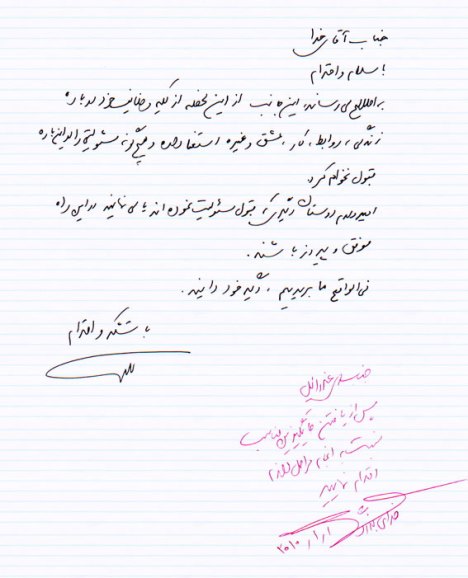 جناب آقای خدا
با سلام و احترام
به اطلاع می رساند، این جانب از این لحظه از کلیه وظایف خود درباره
زندگی، روابط، کار، عشق و غیره استعفا داده و هیچ گونه مسئولیتی را در این باره
قبول نخواهم کرد.
امیدوارم دوستان دیگری که قبول مسئولیت نموده اند یا می نمایند در این راه
موفق و پیروز باشند.
فی الواقع ما بریدیم، دیگه خود دانید.
با تشکر و احترام
جناب عزرائیل
پس از یافتن جایگزین مناسب
نسبت به انجام مراحل لازم
اقدام نمایید
خدای بزرگ
۲۰۱۰